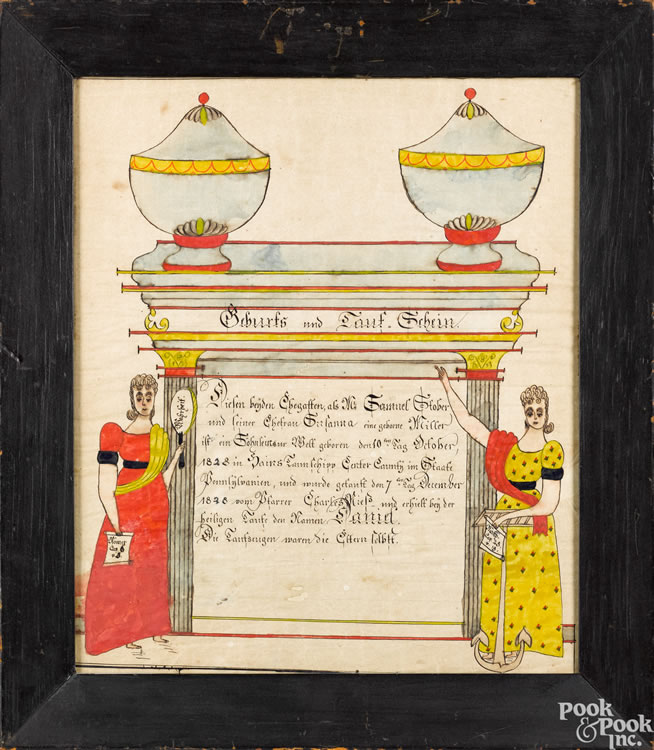 Geburts und Tauf-Schein.
Diesen beyden Ehegatten, als Mr Samuel Stober
und seiner Ehefrau Susanna eine geborne Miller
ist ein Söhnlein zur Welt geboren den 10ten Tag October,
1828 in Hains Taunschipp Center Caunty im Staate
Pennsylvanien, und wurde getauft den 7ten Tag December
1828 vom Pfarrer Charles Rieß und erhielt bey der
heiligen Taufe den Namen David.
Die Taufzeugen waren die Eltern selbst.
Wahrheit
Cap 6
Pook
& Pook
Inc.